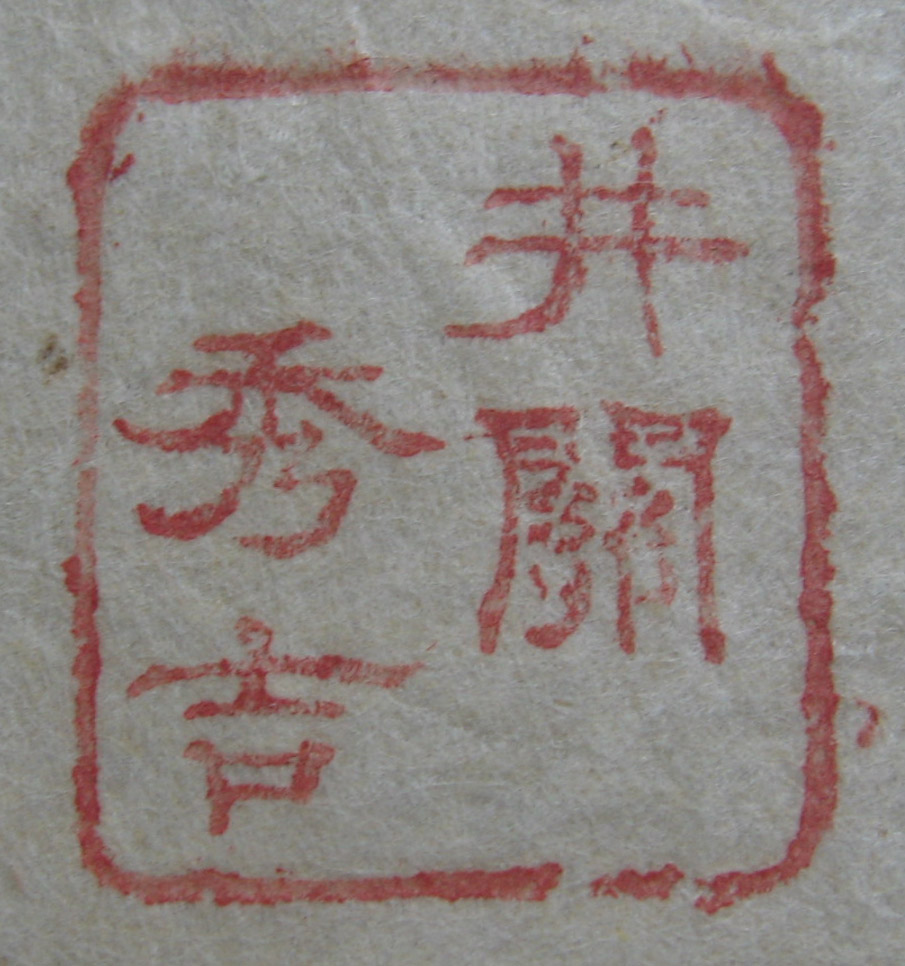 井關
秀吉